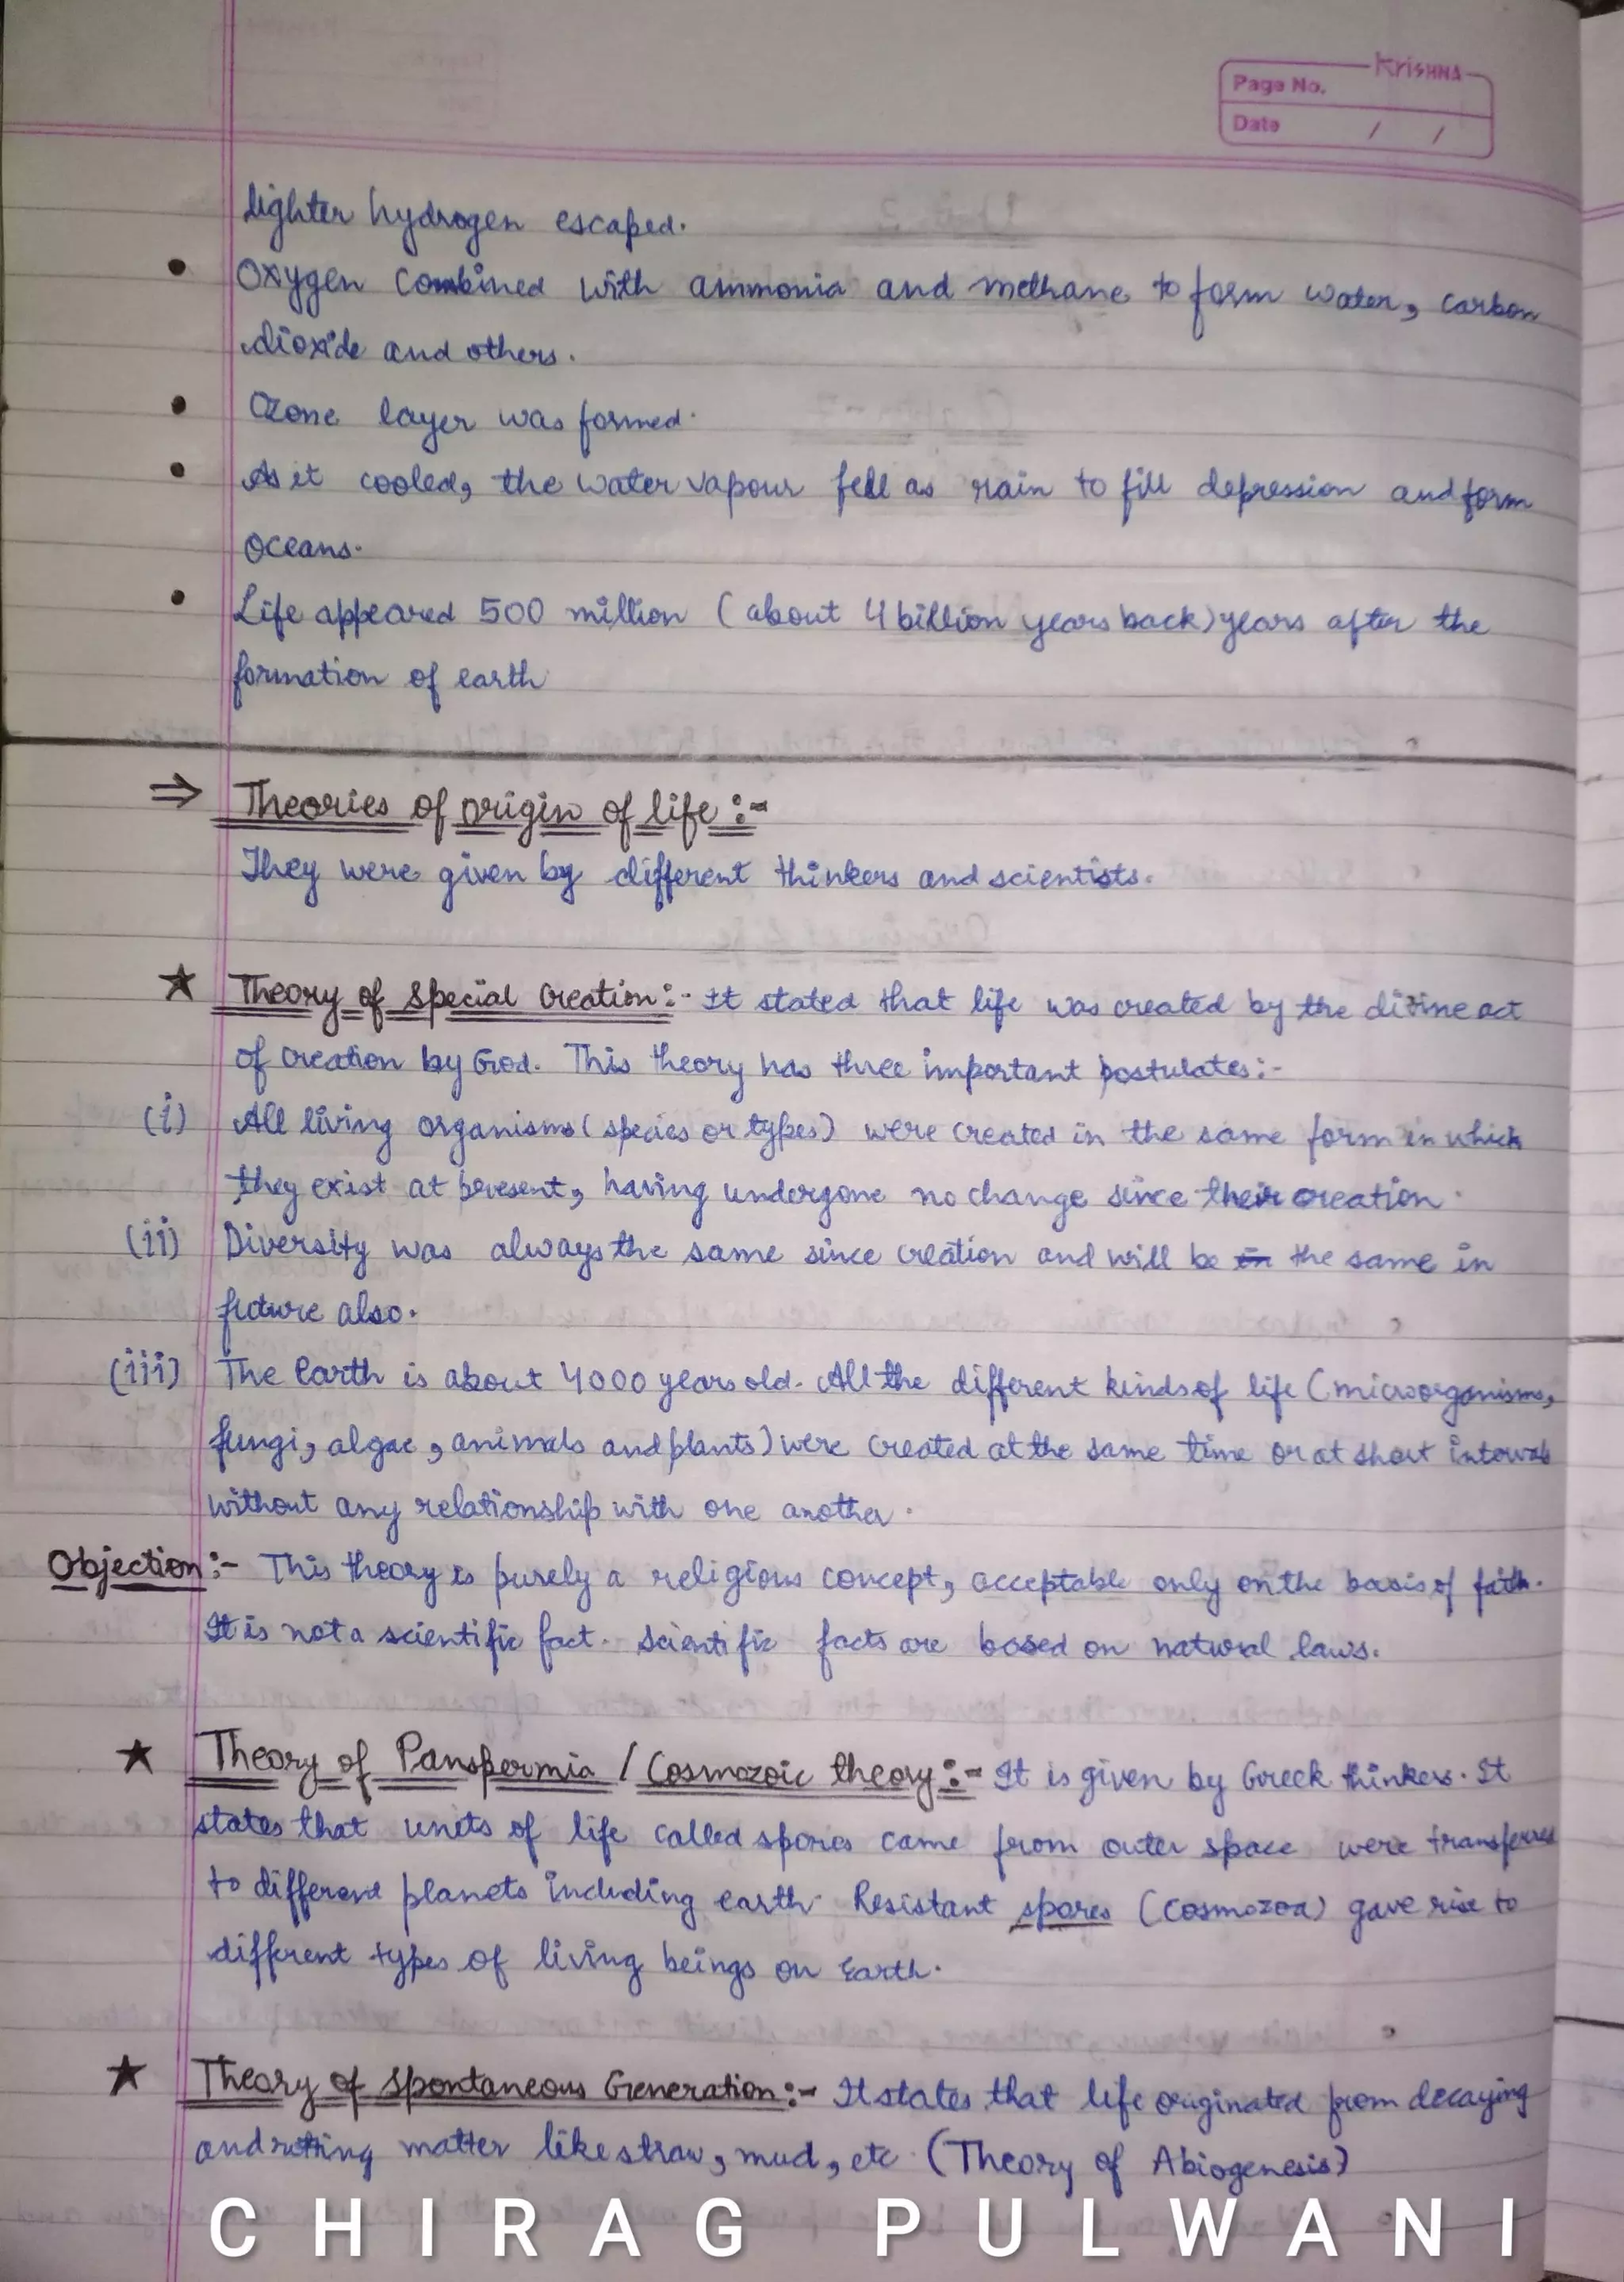 Krishna
Page No.
Date / /
lighter hydrogen escaped.
• Oxygen combined with ammonia and methane to form water, carbon
dioxide and others.
• Ozone layer was formed.
• As it cooled, the water vapour fell as rain to fill depression and form
oceans.
• Life appeared 500 million (about 4 billion years back) years after the
formation of earth
⇒ Theories of origin of life :-
They were given by different thinkers and scientists.
★ Theory of Special Creation :- It stated that life was created by the divine act
of creation by God. This theory has three important postulates :-
(i) All living organisms (species or types) were created in the same form in which
they exist at present, having undergone no change since their creation.
(ii) Diversity was always the same since creation and will be the same in
future also.
(iii) The Earth is about 4000 years old. All the different kinds of life (microorganisms,
fungi, algae, animals and plants) were created at the same time or at short intervals
without any relationship with one another.
Objection :- This theory is purely a religious concept, acceptable only on the basis of faith.
It is not a scientific fact. Scientific facts are based on natural laws.
★ Theory of Panspermia / Cosmozoic theory :- It is given by Greek thinkers. It
states that units of life called spores came from outer space were transferred
to different planets including earth. Resistant spores (cosmozoa) gave rise to
different types of living beings on Earth.
★ Theory of Spontaneous Generation :- It states that life originated from decaying
and rotting matter like straw, mud, etc. (Theory of Abiogenesis)
CHIRAG PULWANI